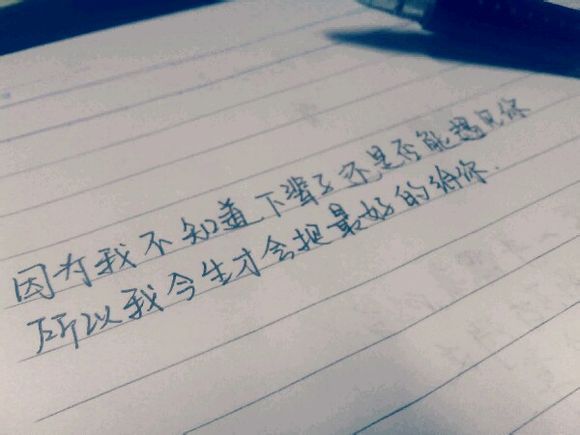 因为我不知道下辈子还是否能遇见你
所以我今生才会把最好的给你.